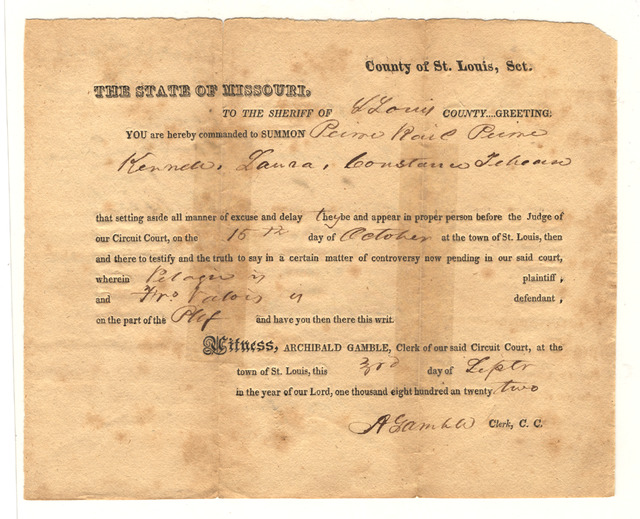 County of St. Louis, Sct.
THE STATE OF MISSOURI,
TO THE SHERIFF OF St Louis COUNTY....GREETING:
YOU are hereby commanded to SUMMON
Laura, Constance
that setting aside all manner of excuse and delay they be and appear in proper person before the Judge of
our Circuit Court, on the 15th day of October at the town of St. Louis, then
and there to testify and the truth to say in a certain matter of controversy now pending in our said court,
wherein Pelagie is plaintiff,
and Valois is defendant,
on the part of the Plff and have you then there this writ.
Witness, ARCHIBALD GAMBLE, Clerk of our said Circuit Court, at the
town of St. Louis, this 3rd day of Septr
in the year of our Lord, one thousand eight hundred and twenty two
A Gamble Clerk, C. C.